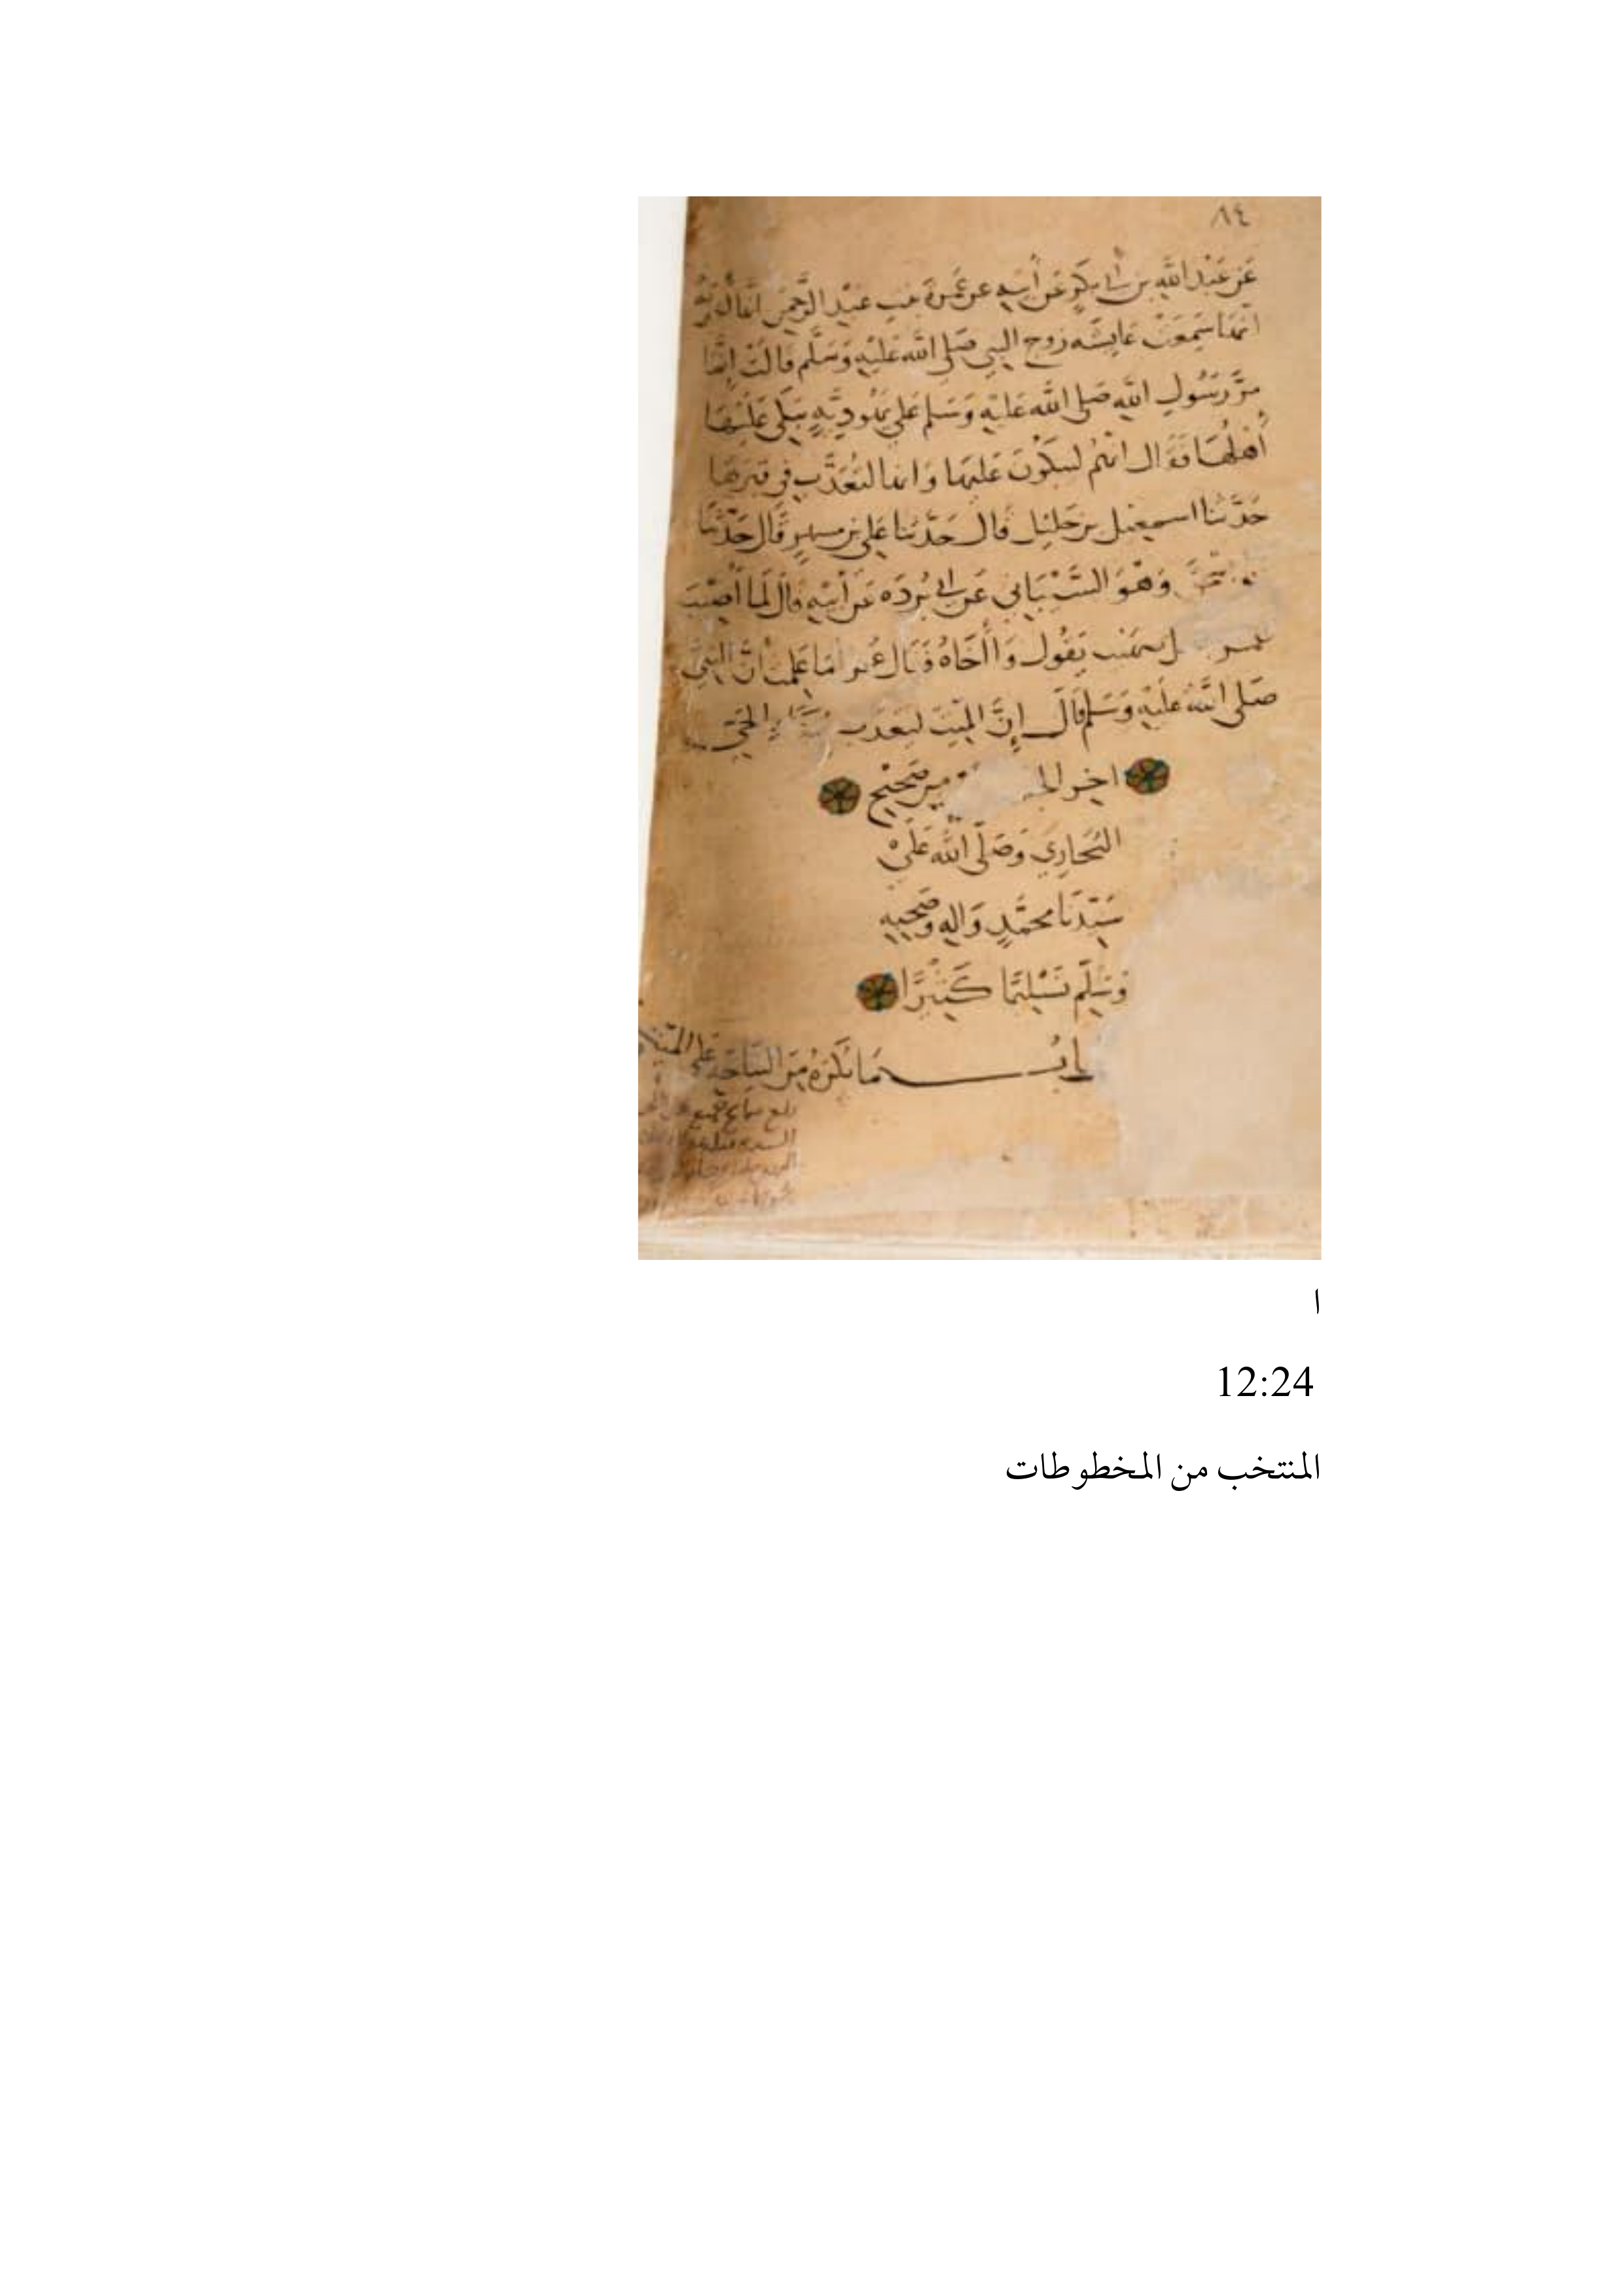 ٨٤
عَن عَبْد اللَّهِ بن أبي بكرٍ عَن أبيهِ عن عَمرةَ بنت عبْدِ الرَّحمنِ أنها أخبرته
أنها سَمِعَتْ عايشه زوج النبي صَلى الله عَليْهِ وَسَلَّم قالَتْ إنَّما
مرَّ رَسُول اللَّه صَلى اللَّه عَليْهِ وَسَلم عَلى يَهُوديَّةٍ يَبكى عَلَيْهَا
أهلُهَا فَقَال انكم لتبكُونَ عَليها وَانها لتُعَذَّب في قبرهَا
حَدَّثنا اسمعيل بن خليل قال حَدَّثنا عَلي بن مسهرٍ قَال حَدَّثنَا
وَهْوَ الشَّيْبَاني عَن ابي بُردَه عَن أبيْهِ قال لَما أُصِيْبَ
عمر صهيب يَقُول وَاأَخَاهُ فَقَال عُمر امَا عَلِمْتَ أَنَّ النبيَّ
صَلى الله عَليْهِ وَسَلم قَالَ إنَّ المَيِّتَ ليعَذب ببُكَاءِ الحَيِّ
اخر من صَحيْح
البُخارِي وَصَلّى اللَّه عَلَىْ
سَيِّدنَا محمَّدٍ وَالِهِ وَصَحبِهِ
وَسَلّم تَسْليمًا كَثِيْرًا
بابُ مَا يُكرَهُ مِنَ النيَاحَةِ عَلى المَيِّت
بلغ
ا
12:24
المنتخب من المخطوطات